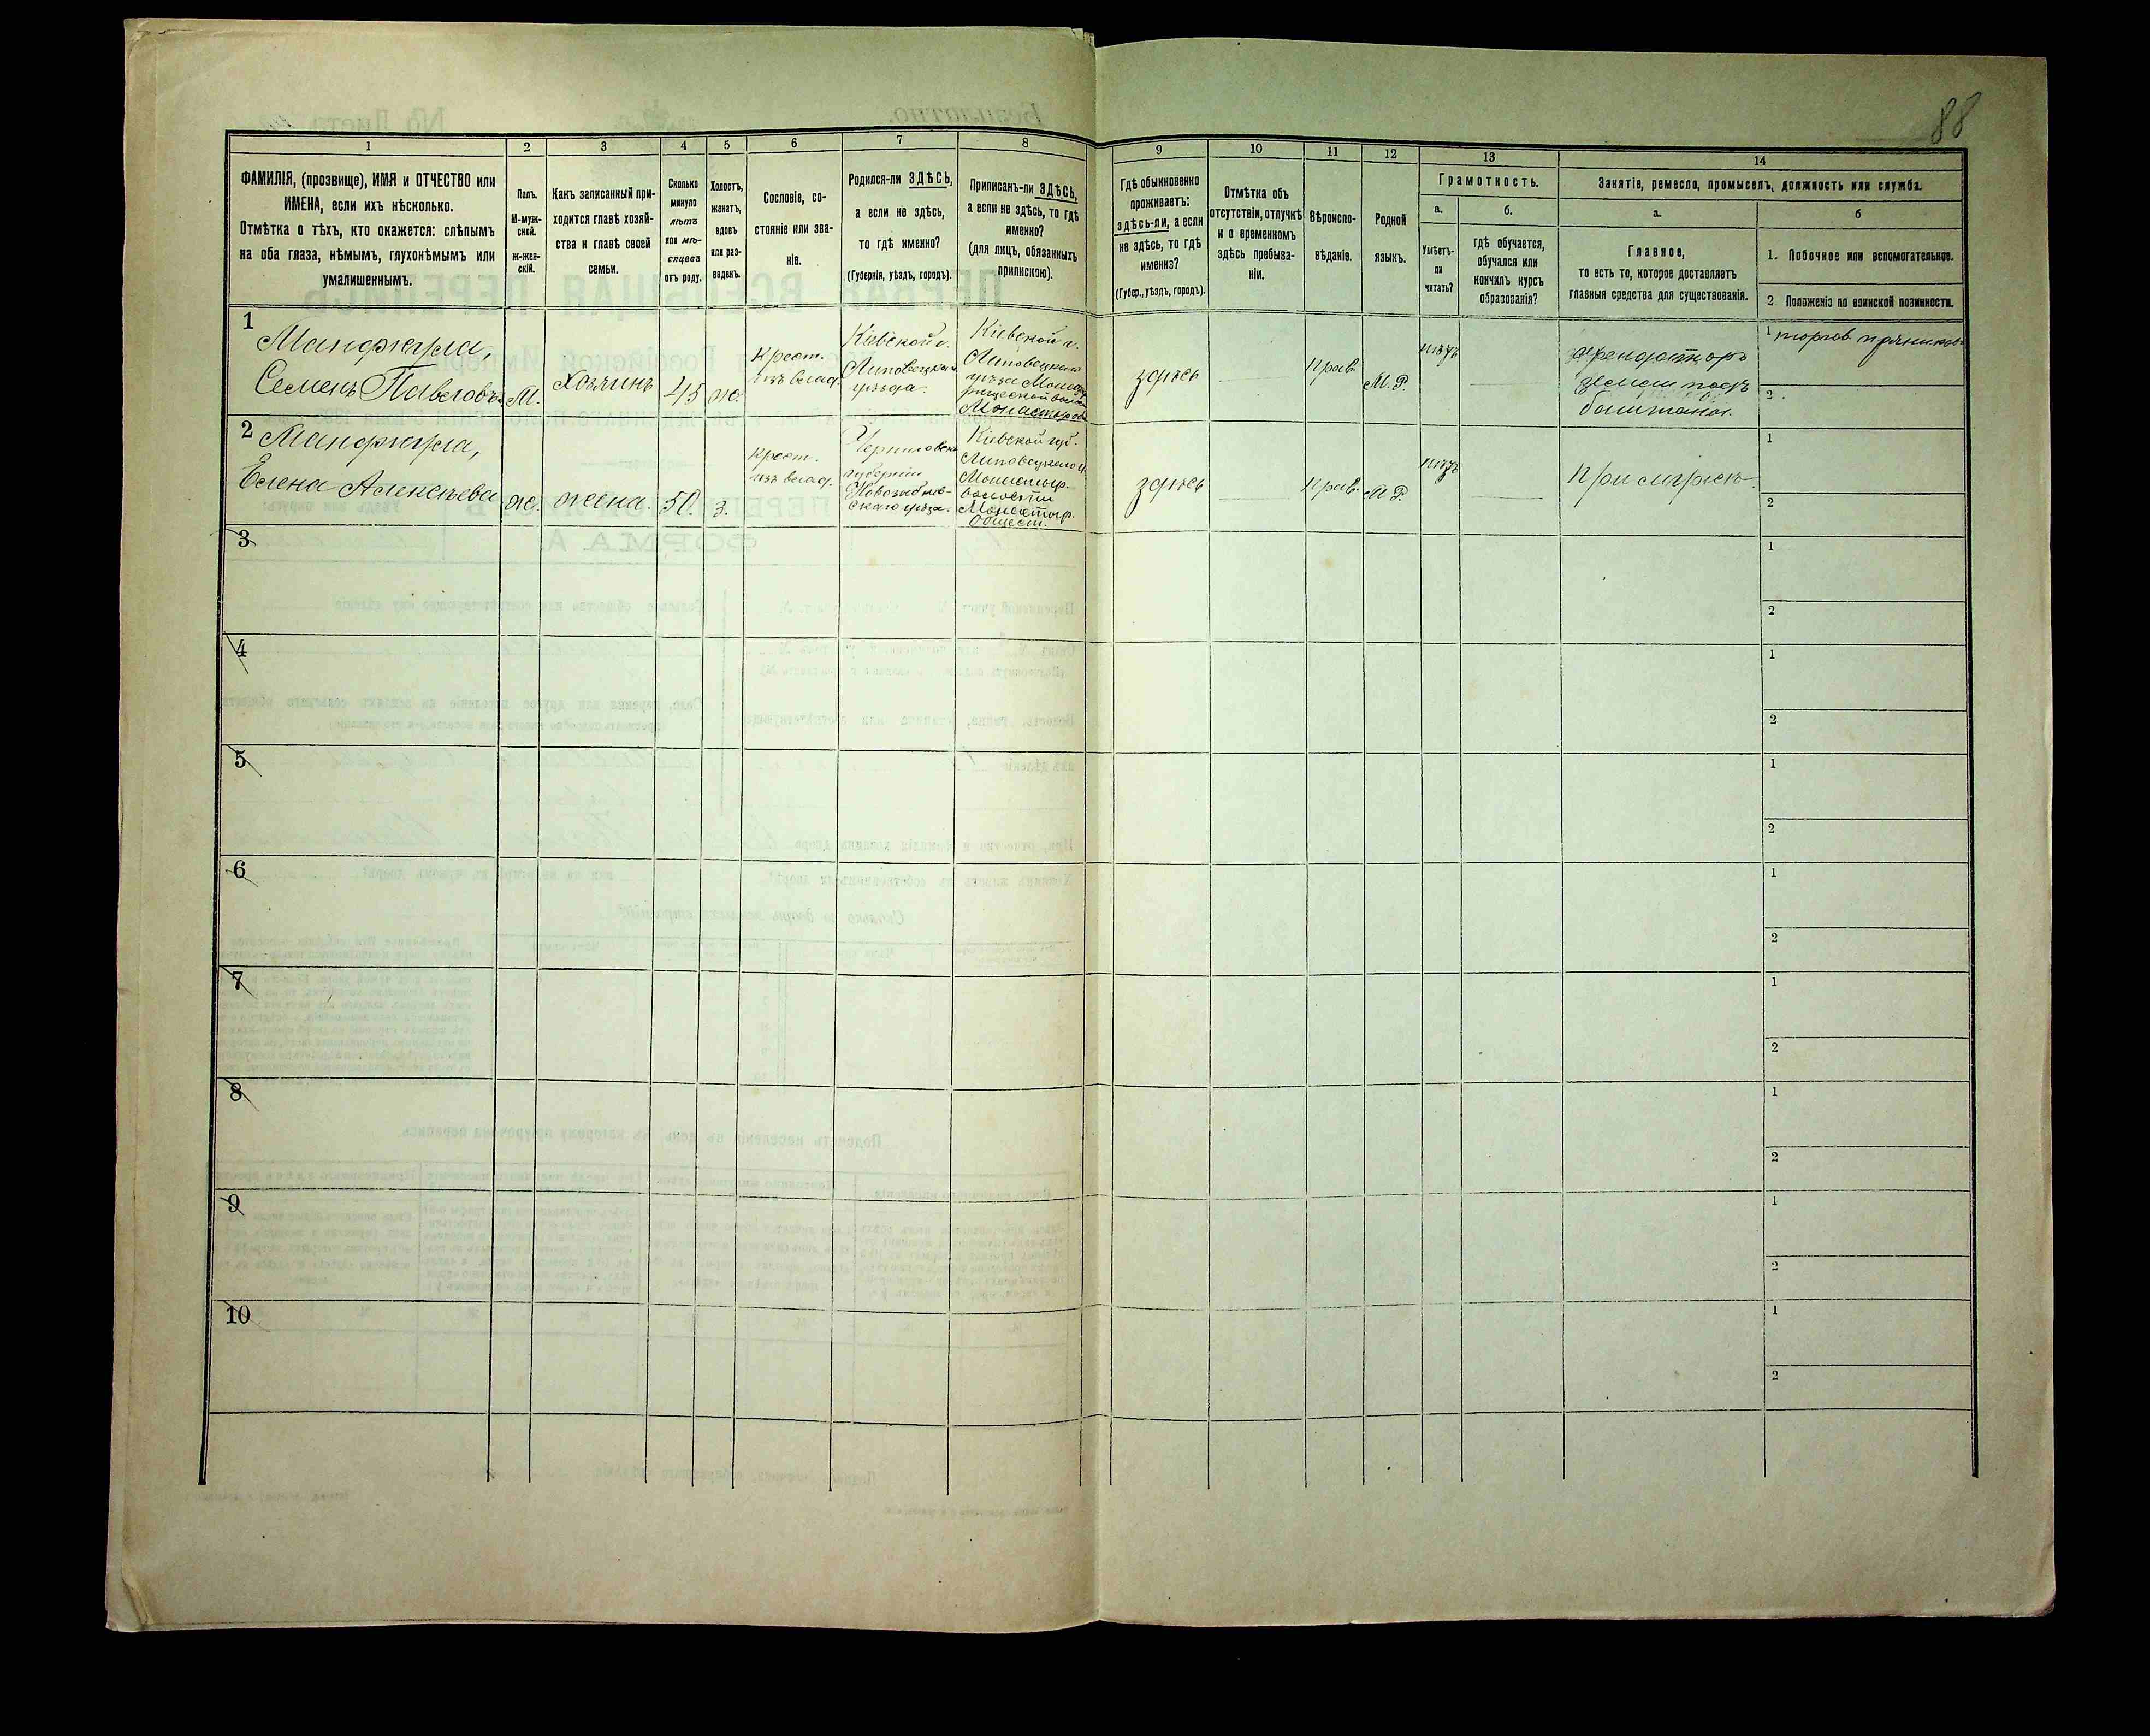 88
1
2
3
4
5
6
7
8
9
10
11
12
13
14
ФАМИЛІЯ, (прозвище), ИМЯ и ОТЧЕСТВО или
ИМЕНА, если ихъ нѣсколько.
Отмѣтка о тѣхъ, кто окажется: слѣпымъ
на оба глаза, нѣмымъ, глухонѣмымъ или
умалишеннымъ.
Полъ.
М-муж-
ской.
ж-жен-
скій.
Какъ записанный при-
ходится главѣ хозяй-
ства и главѣ своей
семьи.
Сколько
минуло
лѣтъ
или мѣ-
сяцевъ
отъ роду.
Холостъ,
женатъ,
вдовъ
или раз-
веденъ.
Сословіе, со-
стояніе или зва-
ніе.
Родился-ли ЗДѢСЬ,
а если не здѣсь,
то гдѣ именно?
(Губернія, уѣздъ, городъ).
Приписанъ-ли ЗДѢСЬ,
а если не здѣсь, то гдѣ
именно?
(для лицъ, обязанныхъ
припискою).
Гдѣ обыкновенно
проживаетъ:
здѣсь-ли, а если
не здѣсь, то гдѣ
именно?
(Губер., уѣздъ, городъ).
Отмѣтка объ
отсутствіи, отлучкѣ
и о временномъ
здѣсь пребыва-
ніи.
Вѣроиспо-
вѣданіе.
Родной
языкъ.
Грамотность.
а.
Умѣетъ-
ли
читать?
б.
гдѣ обучается,
обучался или
кончилъ курсъ
образованія?
Занятіе, ремесло, промыселъ, должность или служба.
а.
Главное,
то есть то, которое доставляетъ
главныя средства для существованія.
б
1. Побочное или вспомогательное.
2 Положеніе по воинской повинности.
1
Манджула,
Семенъ Павловъ
М.
Хозяинъ
45
ж.
Крест.
изъ влад.
Кіевской г.
Липовецкаго
уѣзда.
Кіевской г.
Липовецкаго
здѣсь
прав.
М. Р.
арендаторъ
земли подъ
баштаны.
1 торгов. пряников
2
2
Манджула,
Елена Алексѣева
ж.
жена.
50.
з.
Крест.
изъ влад.
Черниговск.
губерніи
Новозыбков-
скаго уѣзда.
Кіевской губ.
Липовецкаго у.
Монастыр.
волости
Монастыр.
Общест.
здѣсь
прав.
М. Р.
при мужѣ.
1
2
3
1
2
4
1
2
5
1
2
6
1
2
7
1
2
8
1
2
9
1
2
10
1
2